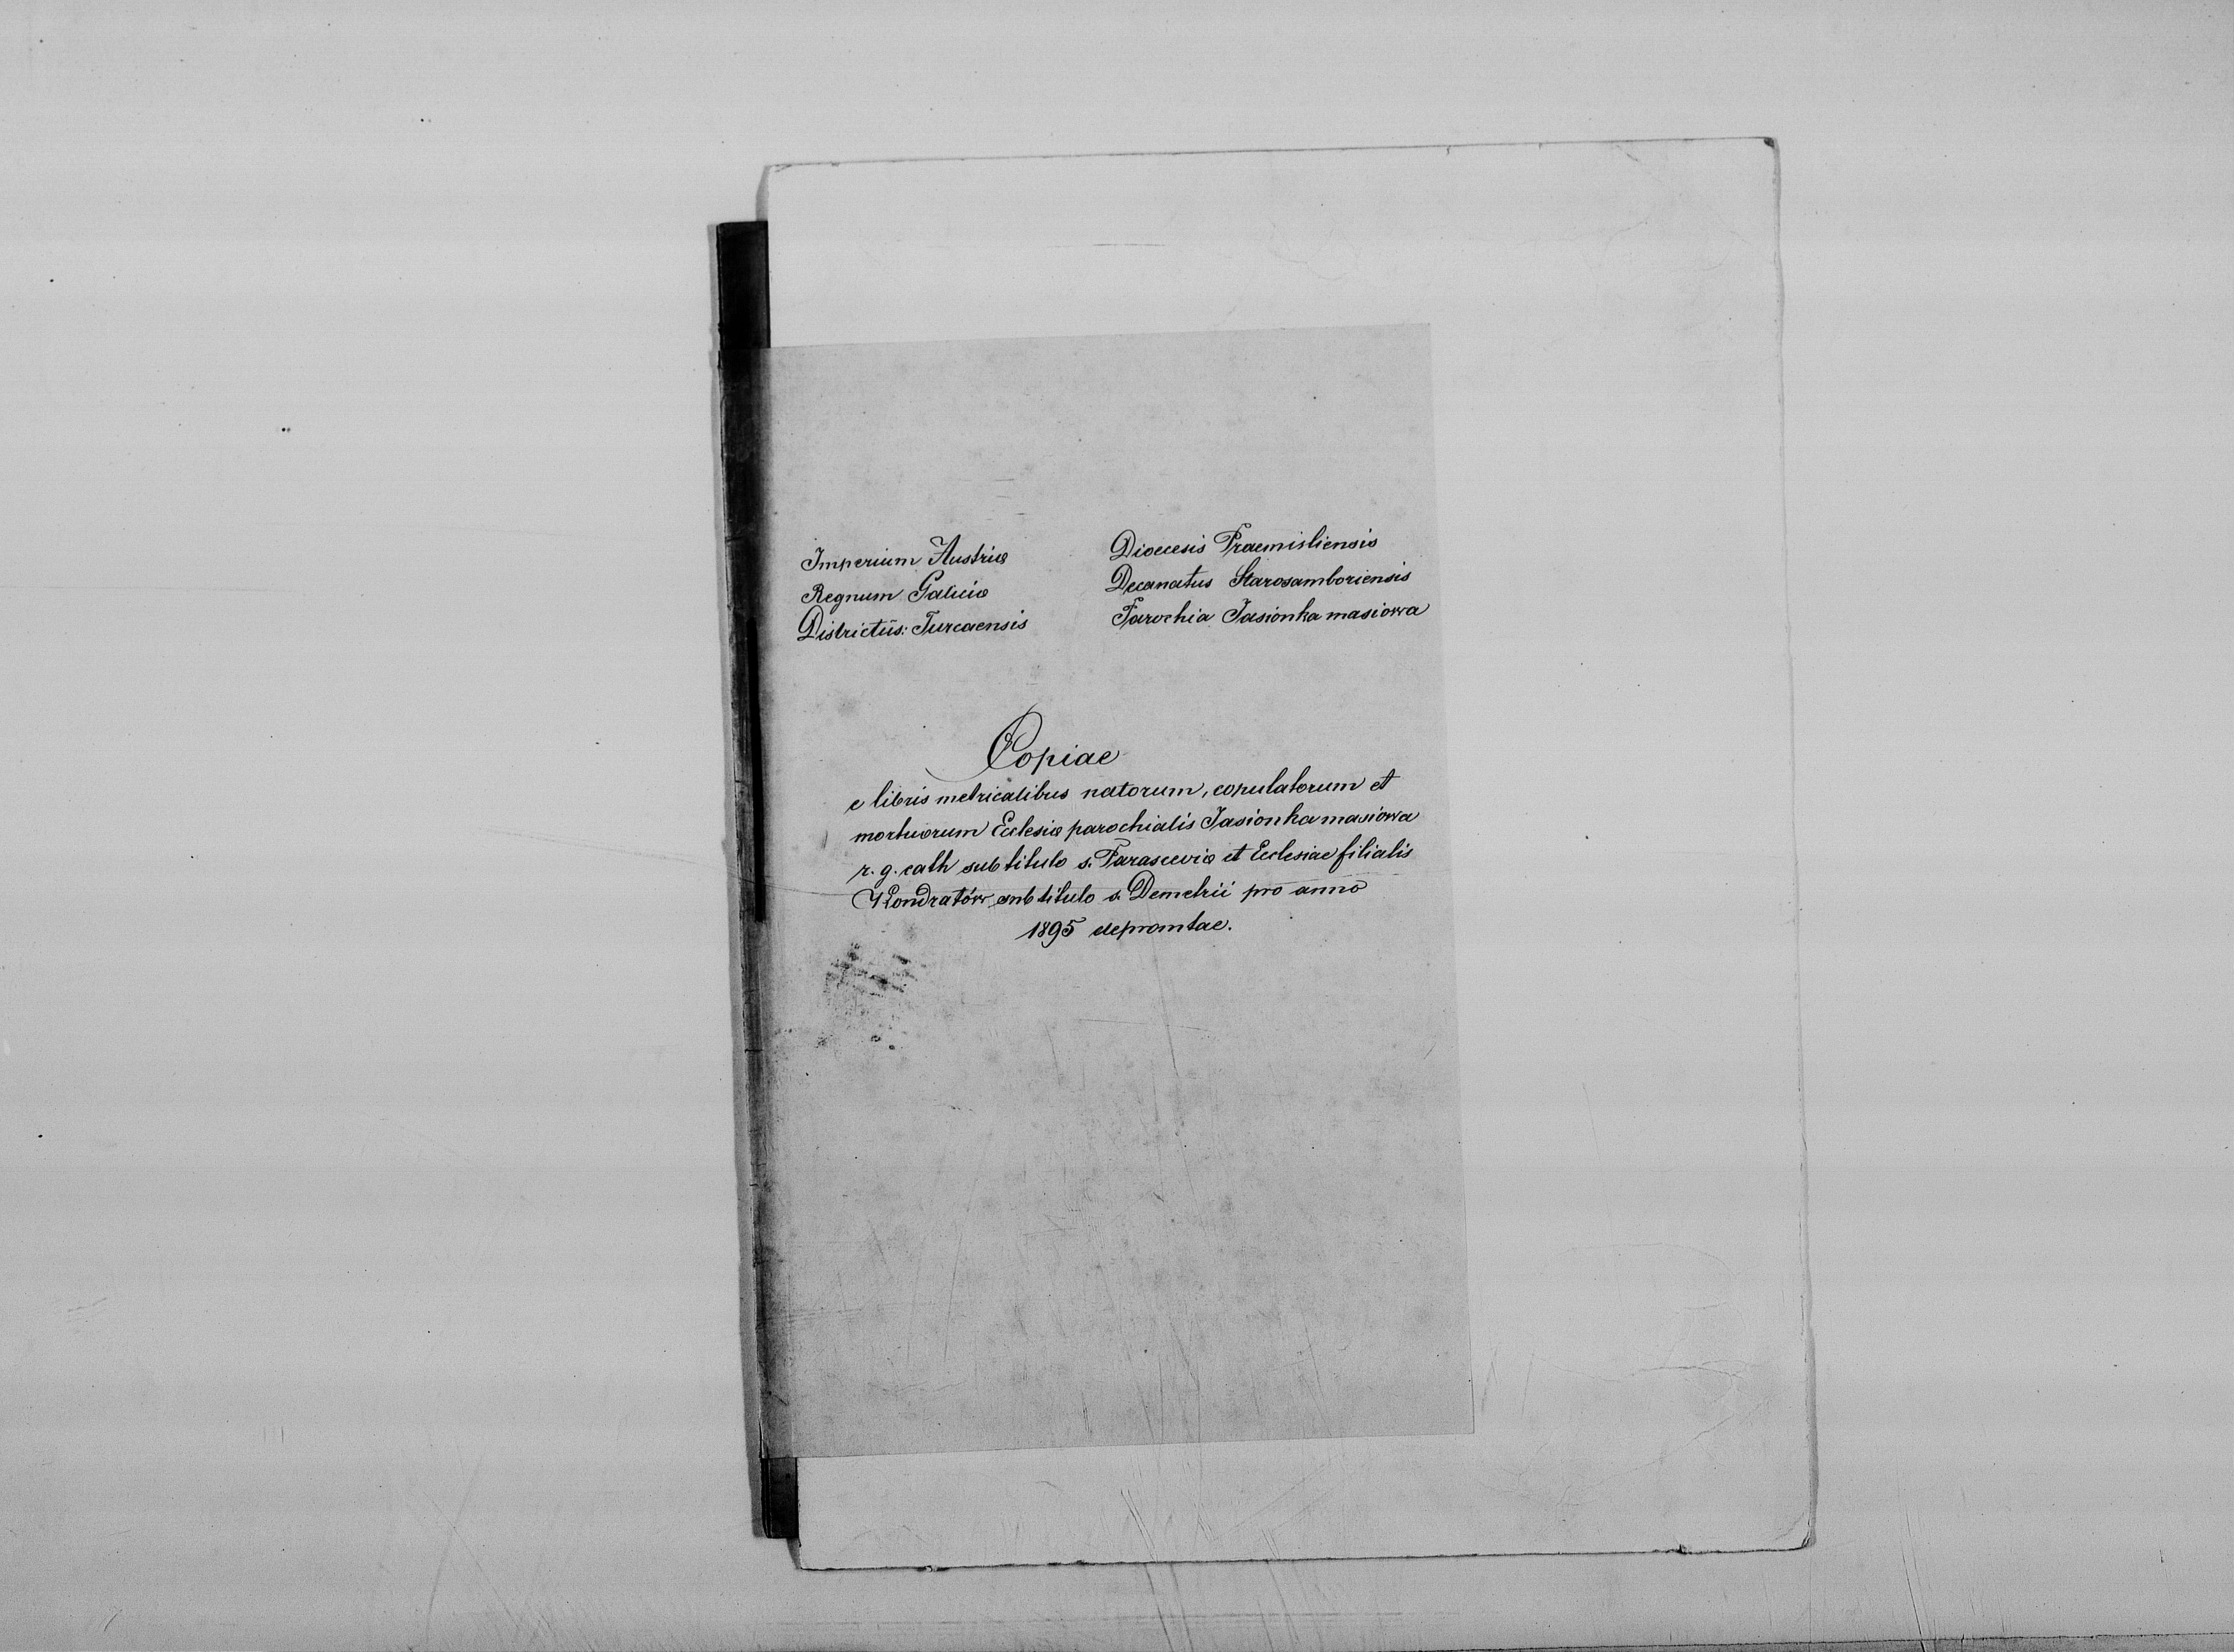 Imperium Austriæ
Regnum Galiciæ
Districtus: Turcaensis
Dioecesis Praemisliensis
Decanatus Starosamboriensis
Parochia Jasionka masiowa
Copiae
e libris metricalibus natorum, copulatorum et
mortuorum Ecclesiæ parochialis Jasionka masiowa
r. g. cath sub titulo s. Parasceviæ et Ecclesiae filialis
Kondratów sub titulo s. Demetrii pro anno
1895 depromtae.